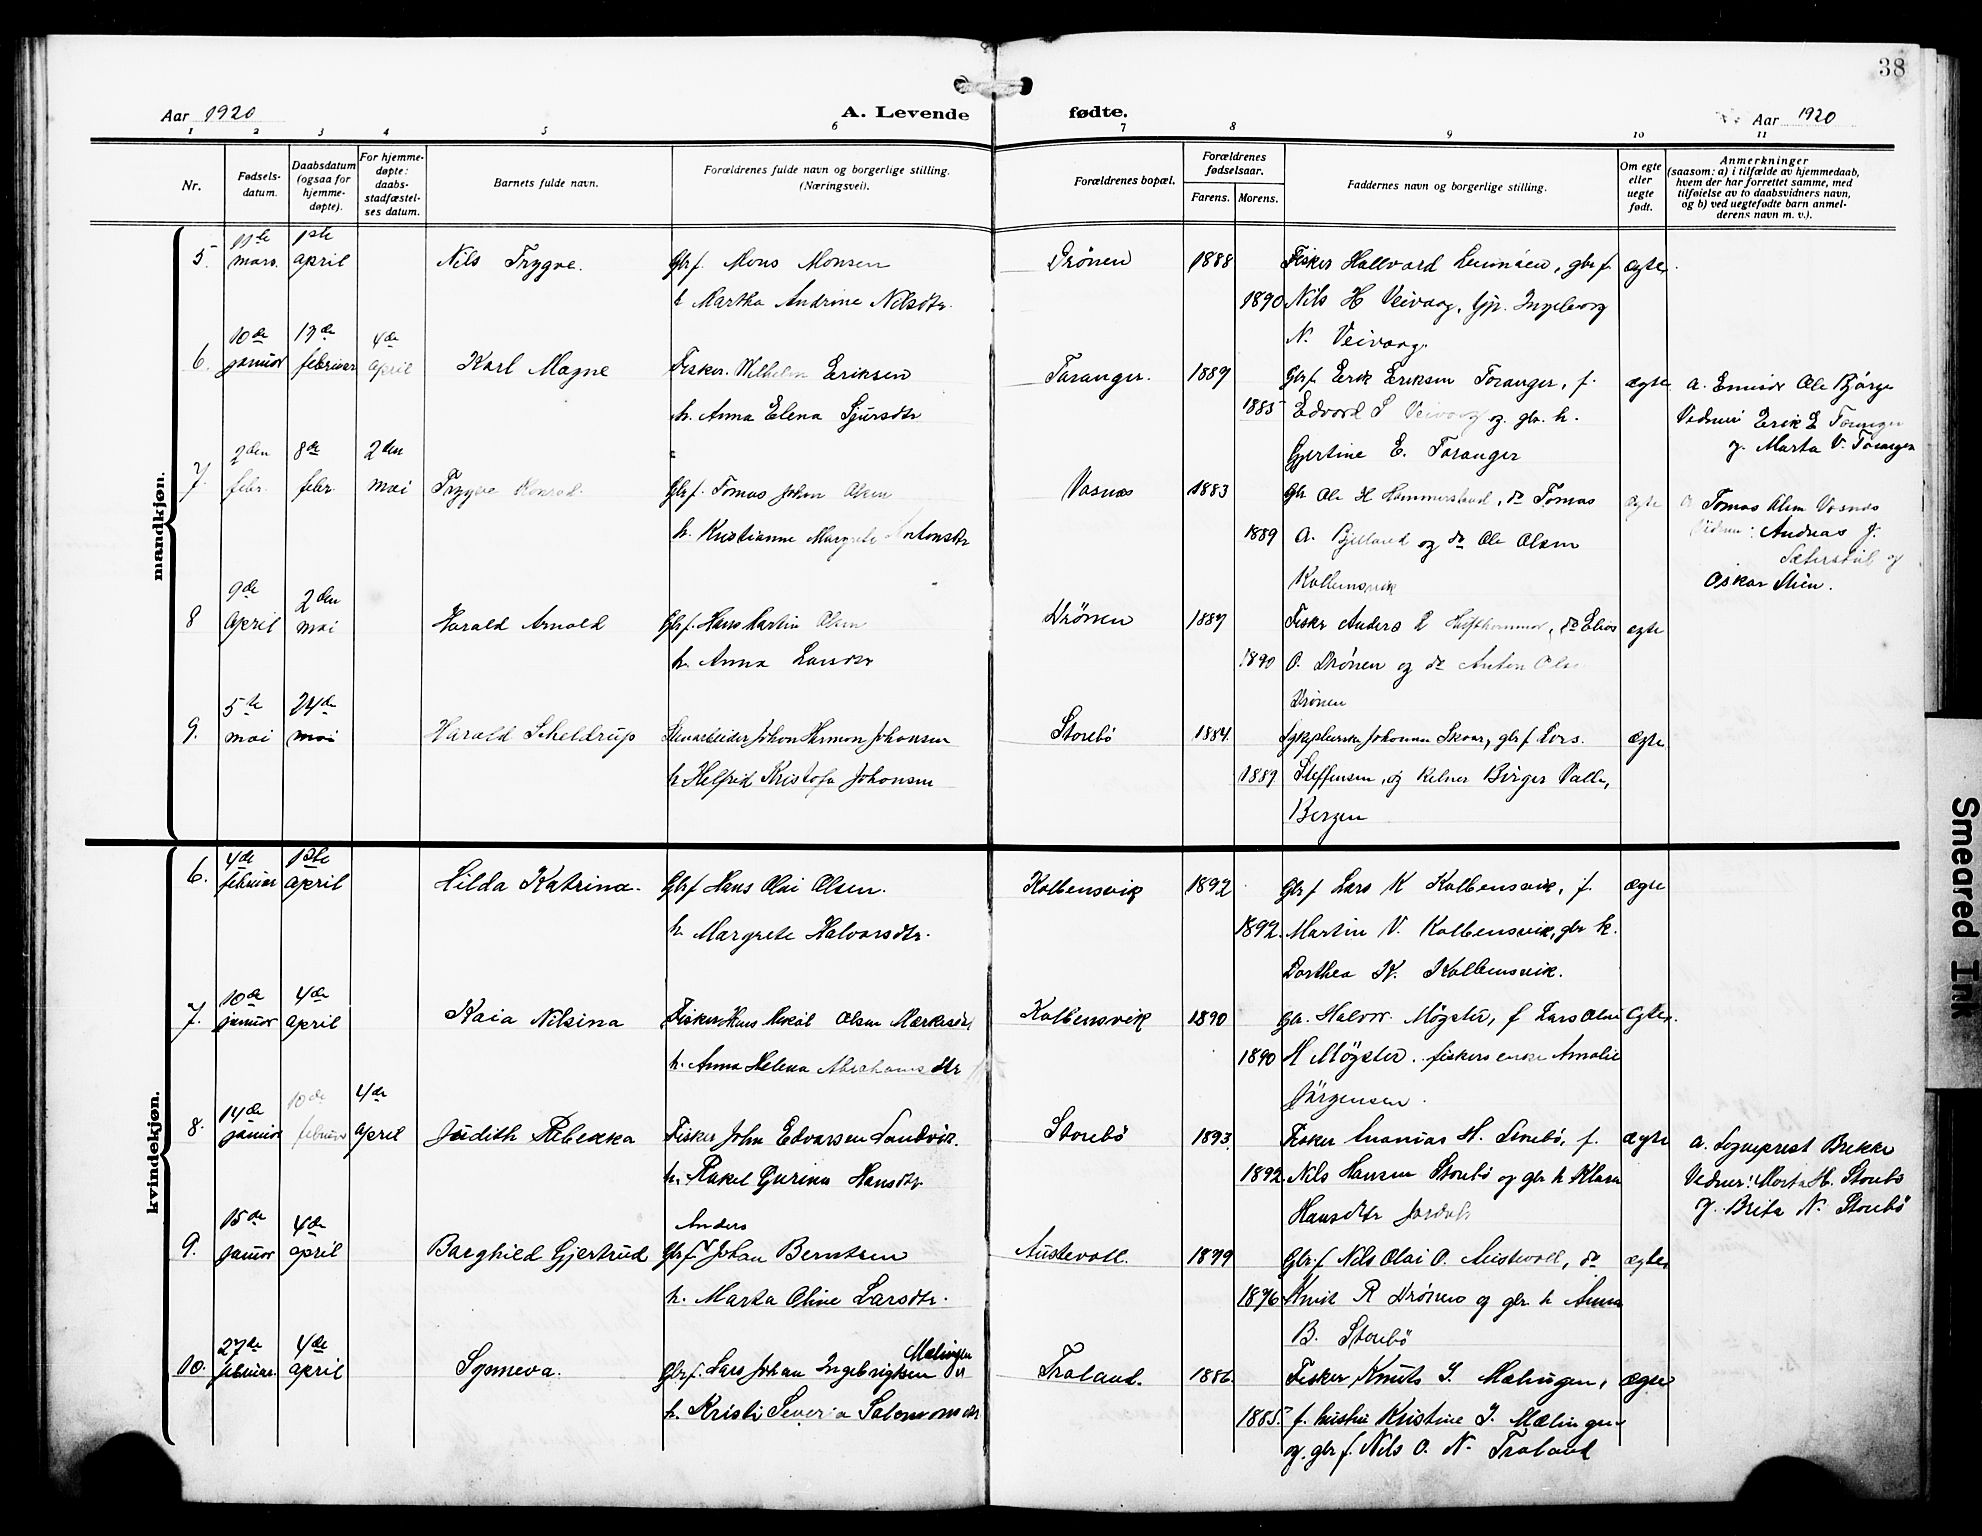 38
Aar 1920
A. Levende fødte.
Aar 1920
1 2 3 4 5 6 7 8 9 10 11
Nr.
Fødsels-
datum.
Daabsdatum
(ogsaa for
hjemme-
døpte).
For hjemme-
døpte:
daabs-
stadfæstel-
ses datum.
Barnets fulde navn.
Forældrenes fulde navn og borgerlige stilling.
(Næringsvei).
Forældrenes bopæl.
Forældrenes
fødselsaar.
Farens. Morens.
Faddernes navn og borgerlige stilling.
Om egte
eller
uegte
født.
Anmerkninger
(saasom: a) i tilfælde av hjemmedaab,
hvem der har forrettet samme, med
tilføielse av to daabsvidners navn,
og b) ved uegtefødte barn anmel-
derens navn m. v.).
mandkjøn.
11te 1ste
5. mars. april Nils Trygve. Gbr f. Mons Monsen Drönen 1888 Fisker Hallvard, gbr f. ægte.
h Martha Andrine Nilsdtr. 1890 Nils H Veivaag, Gp. Ingeborg
N. Veivaag.
10de 17de 4de
6. januar februar april Karl Magne Fisker. Wilhelm Eriksen Toranger. 1889 Gbr f. Erik Eriksen Toranger, f. ægte a. Emissr Ole Bjørge
h. Anna Elena Sjursdtr 1885 Edvard S Veivaag og gbr. h. Vidner: Erik E Toranger
Gjertine E. Toranger og Marta V. Toranger
2den 8de 2den
7. febr. febr. mai Trygve Konrad. Gbr f. Tomas Johan Olsen Vasnes 1883 Gbr Ole H Hammersland, do Tomas ægte a Tomas Olsen Vasnes
h. Kristianne Margrete Antonsdtr 1889 A. Bjelland og do Ole Olsen Vidner: Andreas J.
Kolbensvik og
Oskar Stien.
9de 2den
8 april mai Harald Arnold Gbr f. Hans Martin Olsen Drönen 1887 Fisker Anders, do Elias ægte
h. Anna Larsdtr 1890 O. Drönen og do Anton Olsen
Drönen
5te 24de
9. mai mai Harald Scheldrup Johan Herman Johansen Storebö 1884. Johanna Skaar, gbr f Lars. ægte
h Helfrid Kristofa Johansen 1889 Steffensen, og Kelner Birger Valle,
Bergen
kvindekjøn.
4de 1ste
6. februar april Hilda Katrina. Gbr f Hans Olai Olsen. Kolbensvik 1892 Gbr f Lars K Kolbensvik, f. ægte
h. Margrete Halvorsdtr. 1892. Martin V. Kolbensvik, gbr h.
Dorthea K. Kolbensvik.
10de 4de
7. januar april Kaia Nilsina Fisker Hans Mikal Olsen Kolbensvik 1890 Gbr. Halvor Møgster, f Lars Olai ægte.
h. Anna Helena Abrahamsdtr 1890 H Møgster. fiskers enke Amalie
Jörgensen.
14de 10de 4de
8. januar februar april Judith Rebekka Fisker John Edvarsen Sandvik. Storebö 1893. Fisker Ananias H. Storebö, f. ægte a. Sogneprest Brekke
h. Rakel Gurina Hansdtr 1892 Nils Hansen Storebö og gbr h Klara Vidner: Marta H. Storebö
Hansdtr og Brita N. Storebö
15de 4de Anders
9. januar april Borghild Gjertrud Gbr f Johan Berntsen Austevoll. 1879 Gbr. f Nils Olai O. Austevoll, do ægte
h. Marta Oline Larsdtr. 1876 Knut R Drönen og gbr h Anna
B. Storebö
27de 4de Mælingen
10. februar april Synneva. Gbr f. Lars Johan Ingebrigtsen Traland. 1886. Fisker Knuts I. Mælingen, ægte
h. Kristi Severia Salomonsdtr 1885. f. hustru Kristine I. Mælingen
og gbr f. Nils O. N. Traland
Smeared Ink